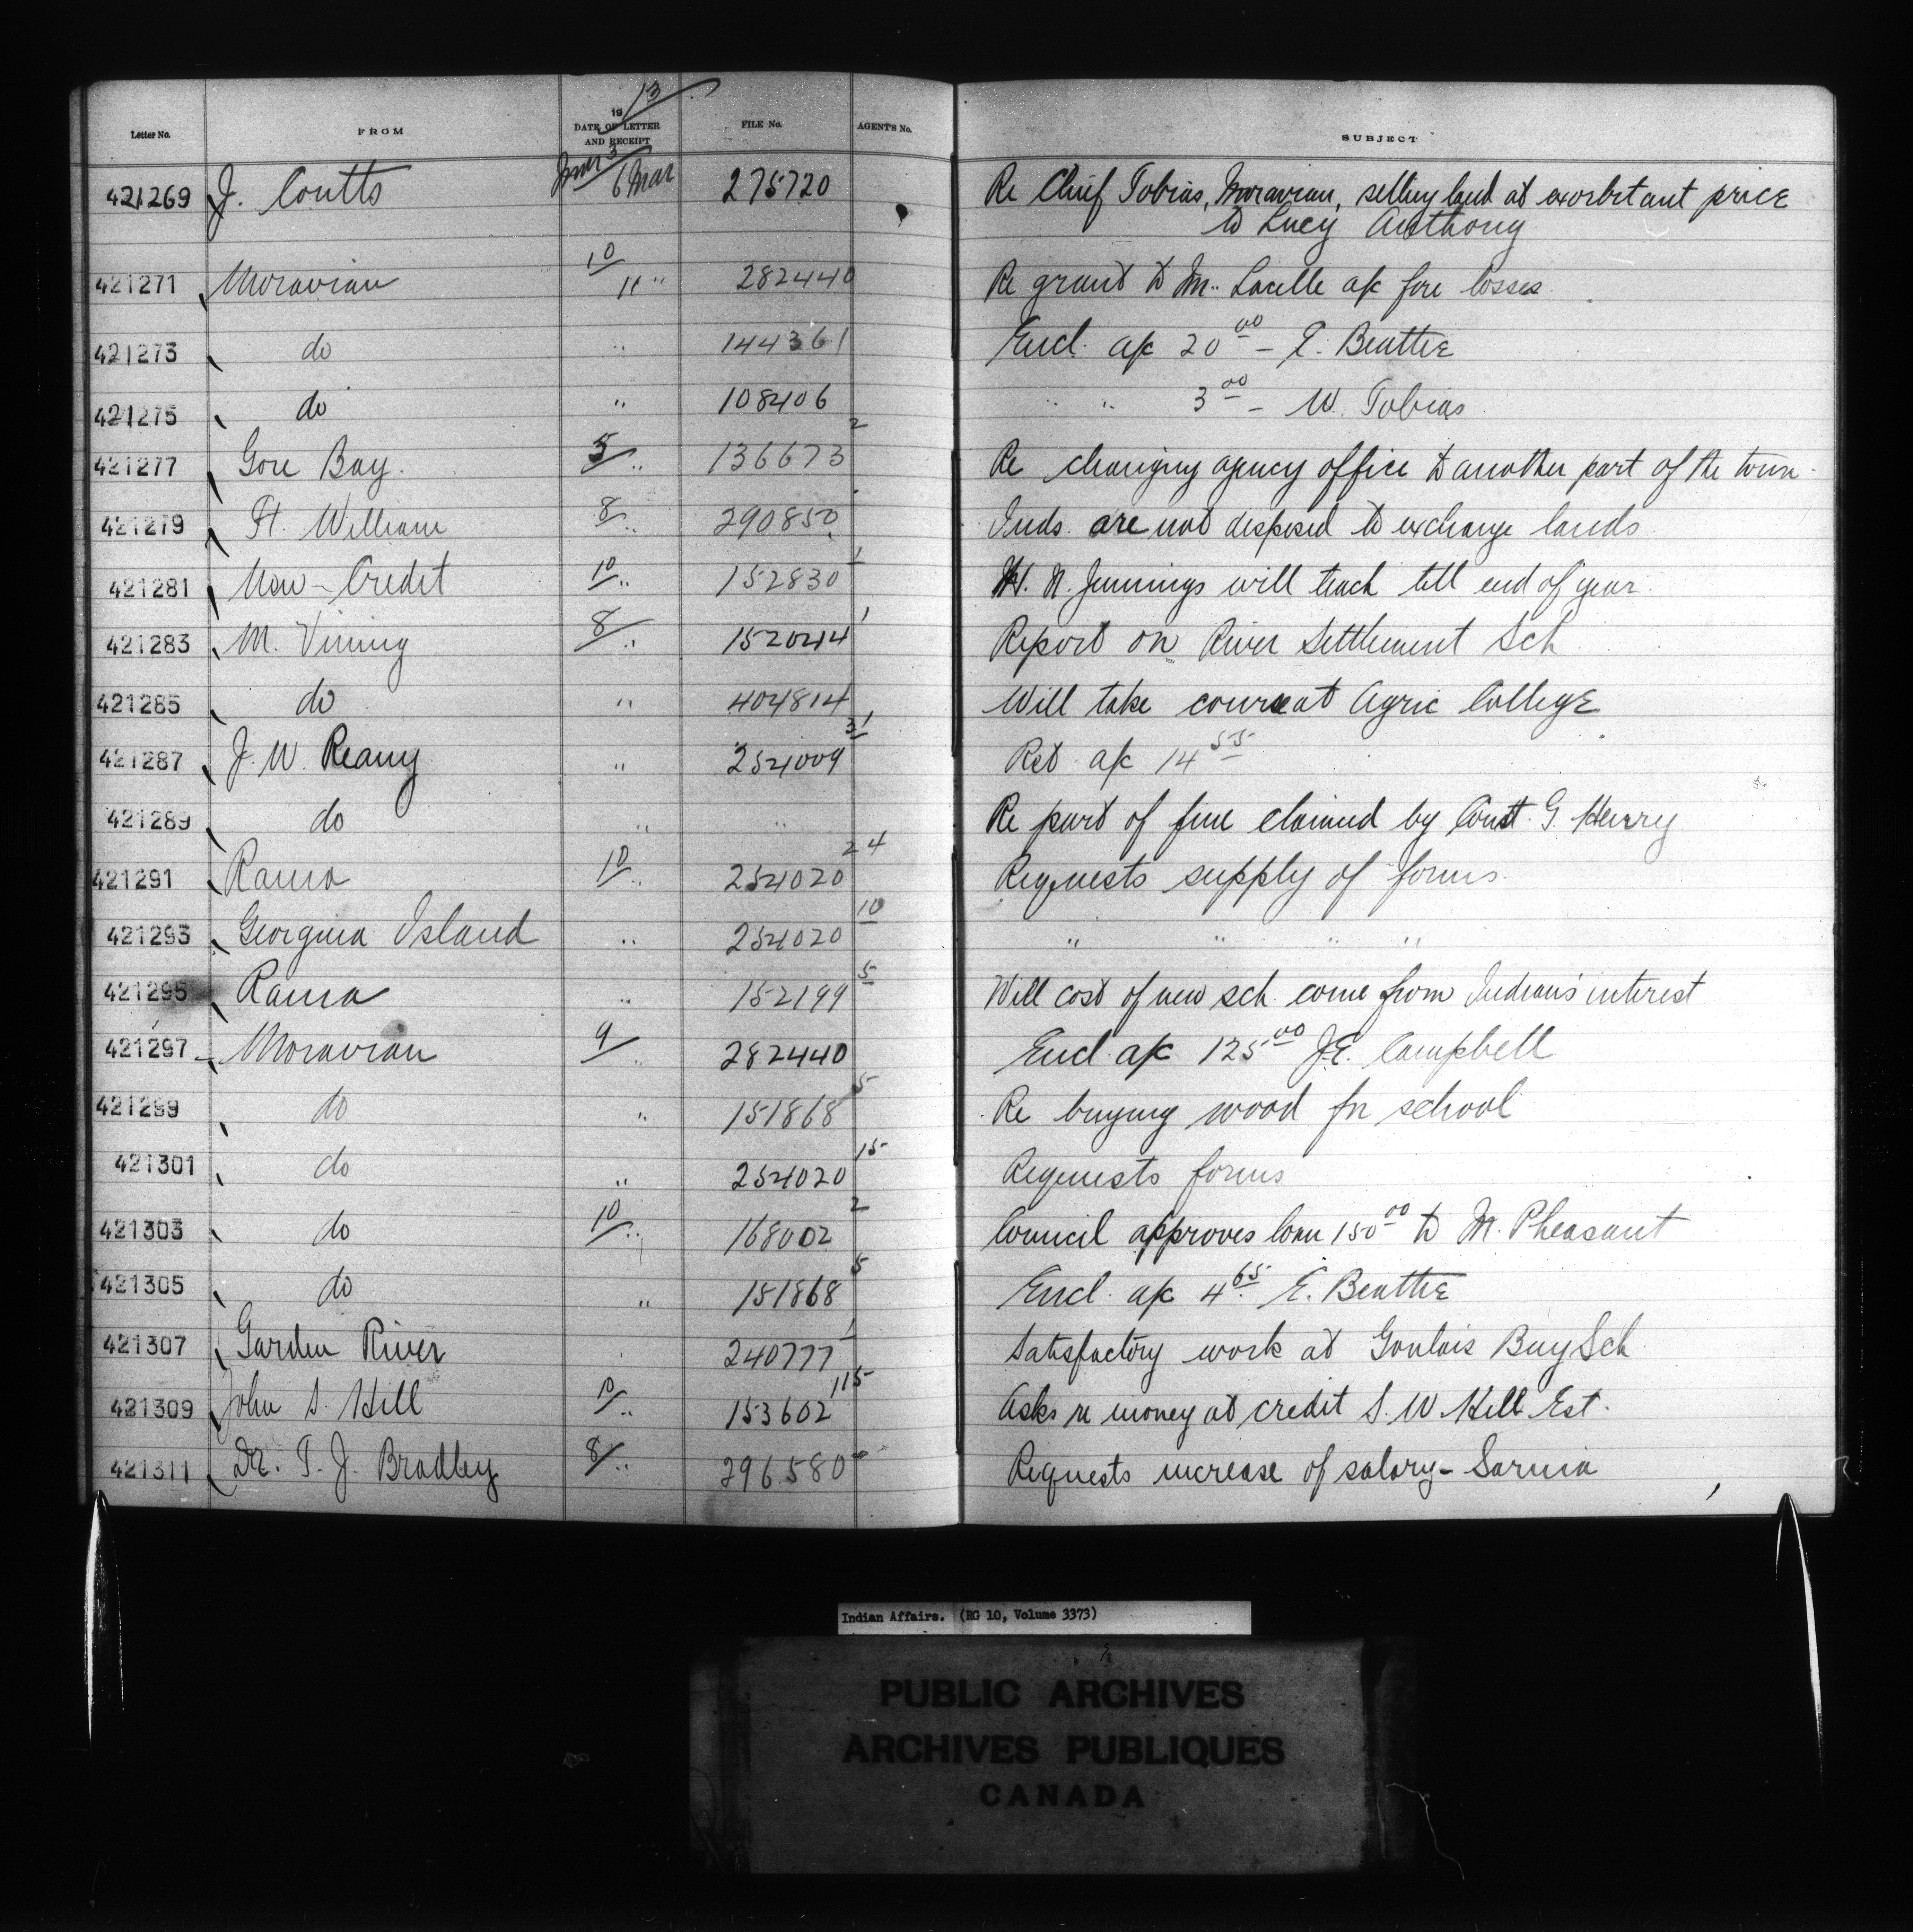 19/13
Letter No. FROM DATE OF LETTER AND RECEIPT FILE No. AGENT'S No. SUBJECT
421269 J. Coutts Mar 3/6 Mar 275720 Re Chief Tobias, Moravian, selling land at exorbitant price
to Lucy Anthony
421271 Moravian 10/11 " 282440 Re grant to M. Lacelle a/c fire losses
421273 do " 144361 Encl. a/c 20.00 – E. Beattie
421275 do " 108406 " " 3.00 – W. Tobias
421277 Gore Bay. 5/" 136673 2 Re changing agency office to another part of the town.
421279 Ft. William 8/" 290850 Inds. are not disposed to exchange lands
421281 New-Credit 10/" 152830 1 W. N. Jennings will teach till end of year
421283 M. Vining 8/" 152044 1 Report on River Settlement Sch
421285 do " 404814 Will take course at Agric College
421287 J. W. Reany " 254009 31 Ret a/c 14.55
421289 do " " Re part of fine claimed by Const. G. Henry
421291 Rama 10/" 254020 24 Requests supply of forms
421293 Georgina Island " 254020 10 " " " "
421295 Rama " 152199 5 Will cost of new sch. come from Indians' interest
421297 Moravian 9/" 282440 Encl. a/c 125.00 J.E. Campbell
421299 do " 151868 5 Re buying wood for school
421301 do " 254020 15 Requests forms
421303 do 10/" 168002 2 Council approves loan 150.00 to M. Pheasant
421305 do " 151868 5 Encl. a/c 4.65 E. Beattie
421307 Garden River " 240777 1 Satisfactory work at Goulais Bay Sch.
421309 John S. Hill 10/" 153602 115 Asks re money at credit S. W. Hill Est.
421311 Dr. T. J. Bradley 8/" 296580 Requests increase of salary – Sarnia
Indian Affairs. (RG 10, Volume 3373)
PUBLIC ARCHIVES
ARCHIVES PUBLIQUES
CANADA